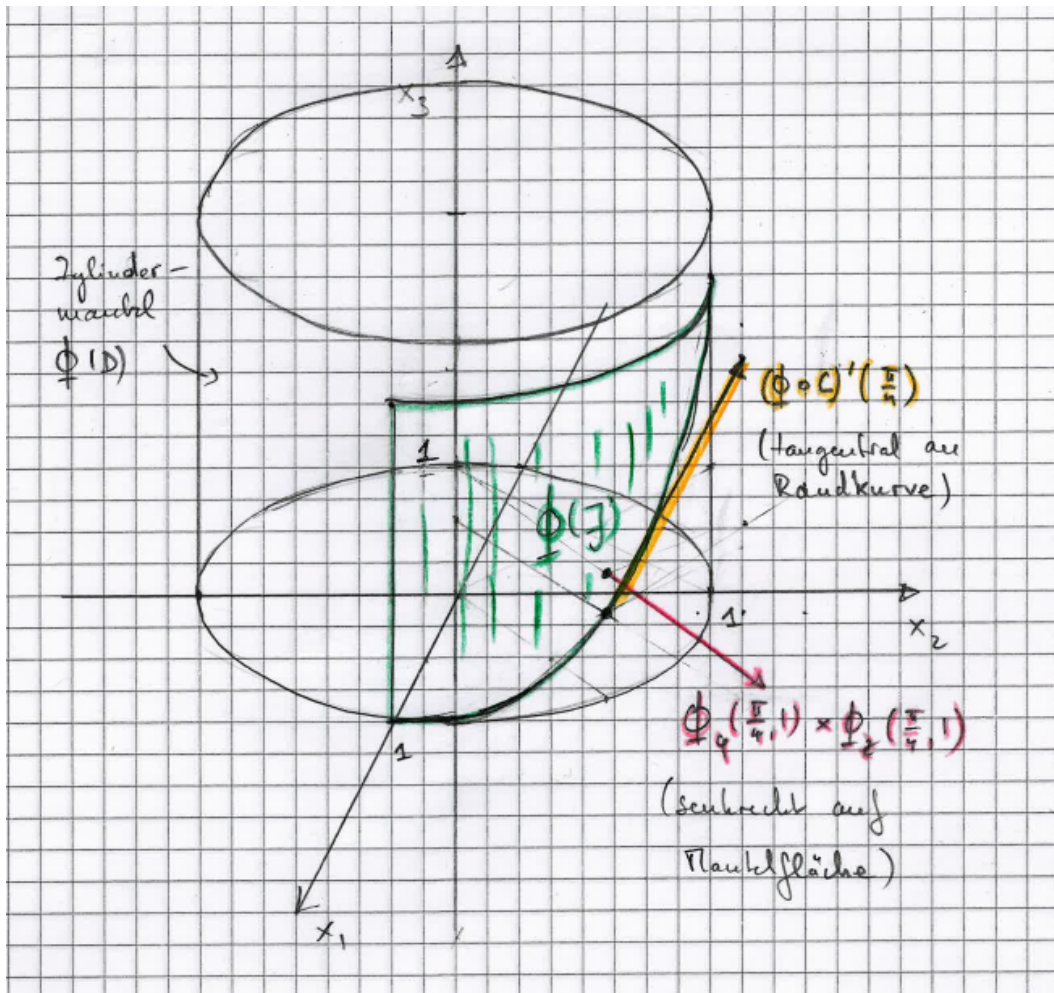 x₃
Zylinder-
mantel
Φ(D)
1
(Φ∘c)'(π/4)
(tangential an
Randkurve)
Φ(J)
1
x₂
1
Φφ(π/4, 1) × Φz(π/4, 1)
(senkrecht auf
Mantelfläche)
x₁